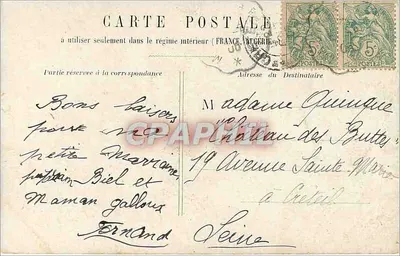 CARTE POSTALE
à utiliser seulement dans le régime intérieur (FRANCE, ALGERIE
Partie réservée à la correspondance
Adresse du Destinataire
Bons baisers
pour ma
petite Marraine
Biel et
Maman
Fernand
Madame Quinque
Château des Buttes
19 Avenue Sainte Marie
à Créteil
Seine
5c
5c
CPAPHIL